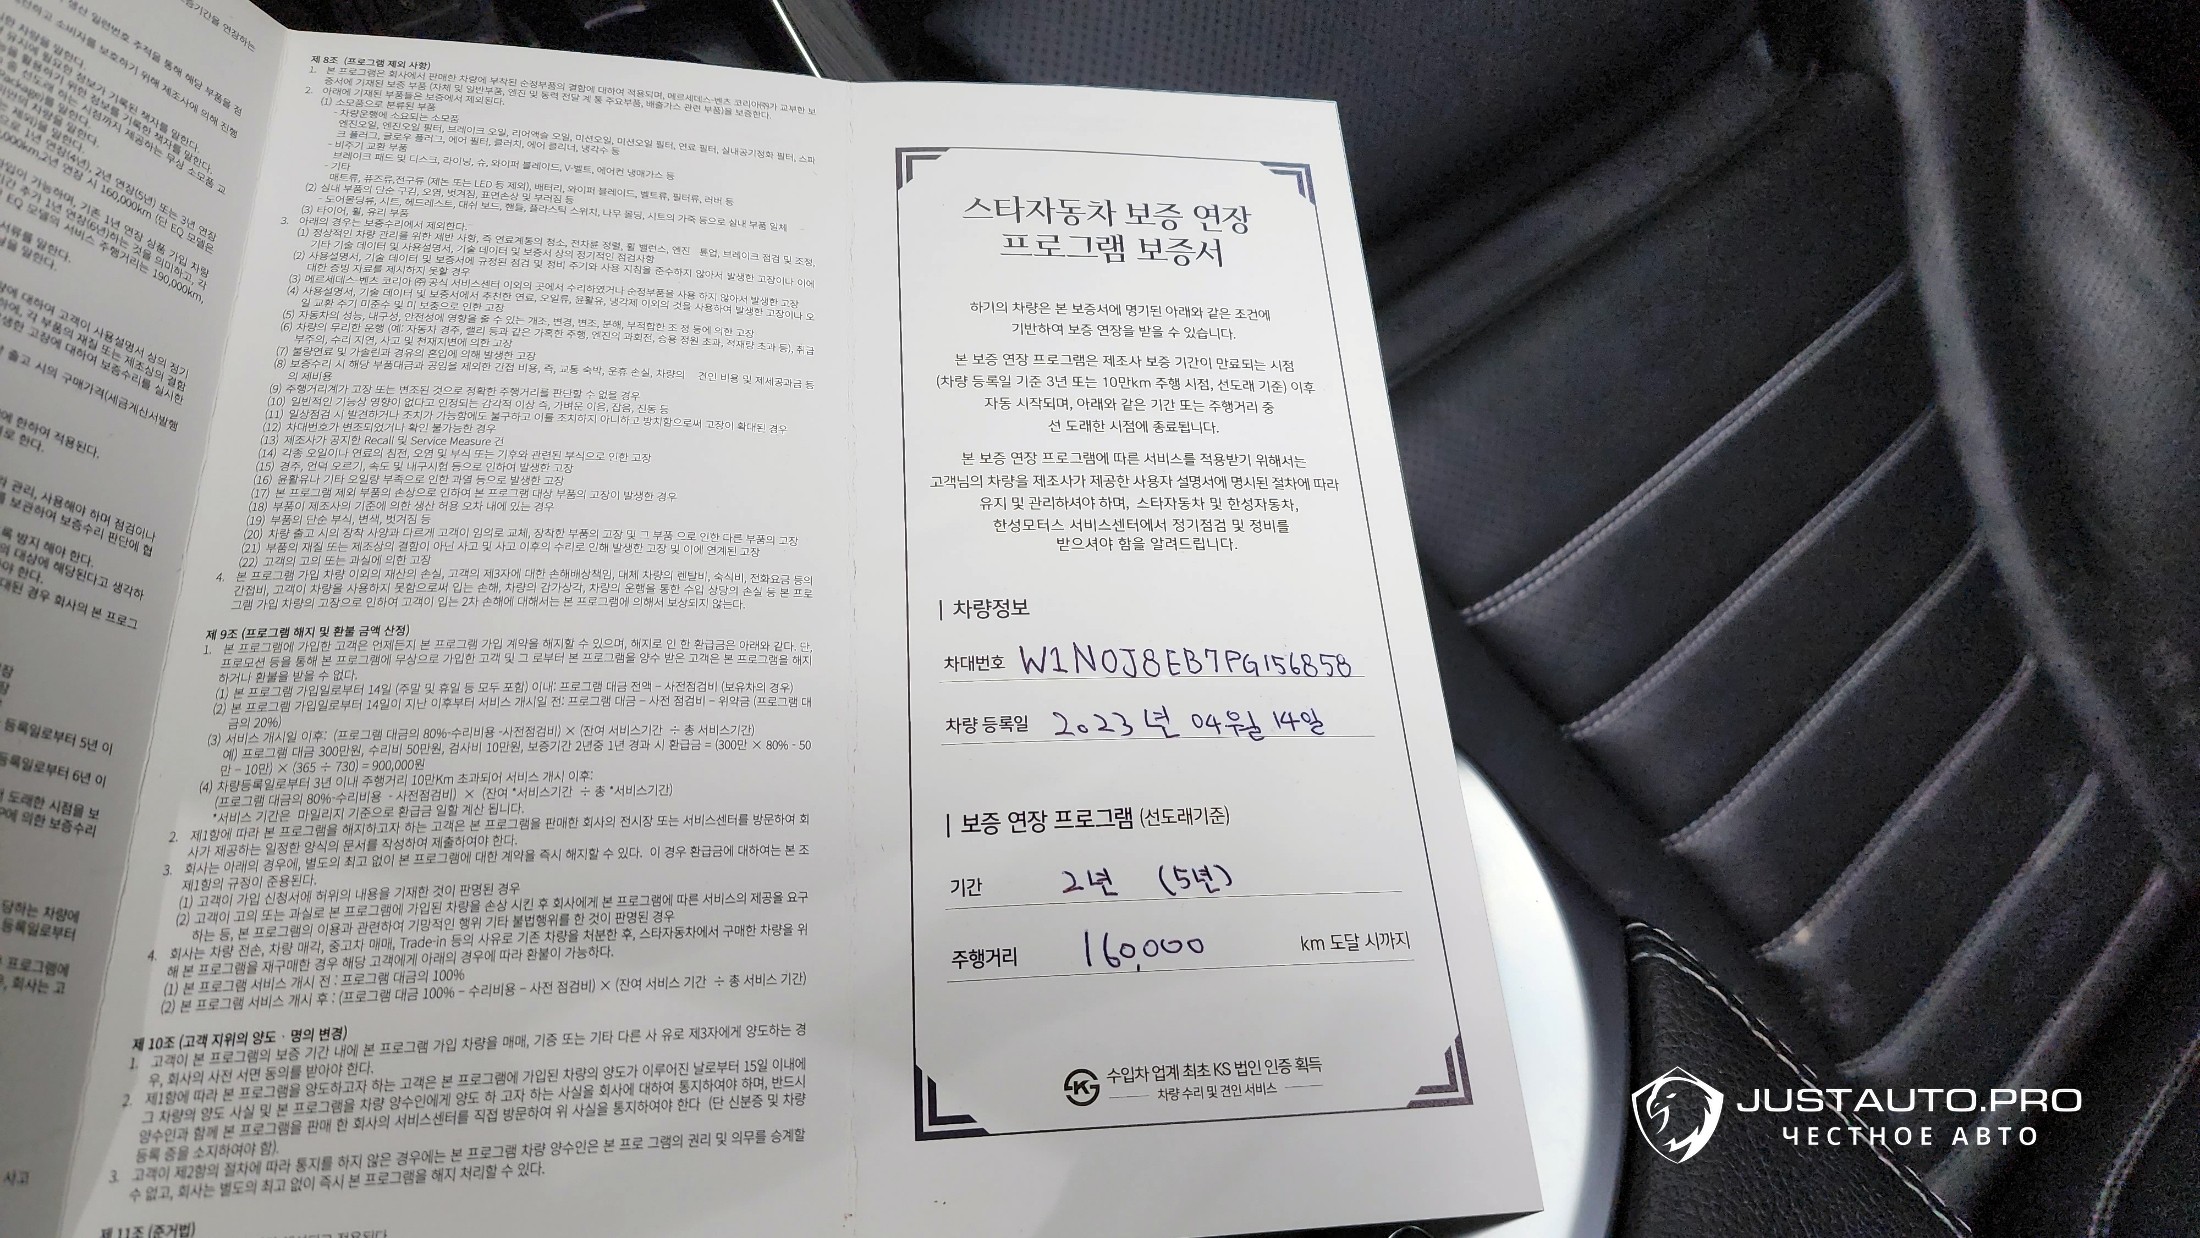 제 8조 (프로그램 제외 사항)
1. 본 프로그램은 회사에서 판매한 차량에 부착된 순정부품의 결함에 대하여 적용되며, 메르세데스-벤츠 코리아㈜가 교부한 보
증서에 기재된 보증 부품 (차체 및 일반부품, 엔진 및 동력 전달 계 통 주요부품, 배출가스 관련 부품)을 보증한다.
2. 아래에 기재된 부품들은 보증에서 제외된다.
(1) 소모품으로 분류된 부품
- 차량운행에 소요되는 소모품
엔진오일, 엔진오일 필터, 브레이크 오일, 리어액슬 오일, 미션오일, 미션오일 필터, 연료 필터, 실내공기정화 필터, 스파
크 플러그, 글로우 플러그, 에어 필터, 클러치, 에어 클리너, 냉각수 등
- 비주기 교환 부품
브레이크 패드 및 디스크, 라이닝, 슈, 와이퍼 블레이드, V-벨트, 에어컨 냉매가스 등
- 기타
매트류, 퓨즈류,전구류 (제논 또는 LED 등 제외), 배터리, 와이퍼 블레이드, 벨트류, 필터류, 러버 등
(2) 실내 부품의 단순 구김, 오염, 벗겨짐, 표면손상 및 부러짐 등
- 도어몰딩류, 시트, 헤드레스트, 대쉬 보드, 핸들, 플라스틱 스위치, 나무 몰딩, 시트의 가죽 등으로 실내 부품 일체
(3) 타이어, 휠, 유리 부품
3. 아래의 경우는 보증수리에서 제외한다.
(1) 정상적인 차량 관리를 위한 제반 사항, 즉 연료계통의 청소, 전차륜 정렬, 휠 밸런스, 엔진 튠업, 브레이크 점검 및 조정,
기타 기술 데이터 및 사용설명서, 기술 데이터 및 보증서 상의 정기적인 점검사항
(2) 사용설명서, 기술 데이터 및 보증서에 규정된 점검 및 정비 주기와 사용 지침을 준수하지 않아서 발생한 고장이나 이에
대한 증빙 자료를 제시하지 못할 경우
(3) 메르세데스-벤츠 코리아 ㈜ 공식 서비스센터 이외의 곳에서 수리하였거나 순정부품을 사용 하지 않아서 발생한 고장
(4) 사용설명서, 기술 데이터 및 보증서에서 추천한 연료, 오일류, 윤활유, 냉각제 이외의 것을 사용하여 발생한 고장이나 오
일 교환 주기 미준수 및 미 보충으로 인한 고장
(5) 자동차의 성능, 내구성, 안전성에 영향을 줄 수 있는 개조, 변경, 변조, 분해, 부적합한 조 정 등에 의한 고장
(6) 차량의 무리한 운행 (예: 자동차 경주, 랠리 등과 같은 가혹한 주행, 엔진의 과회전, 승용 정원 초과, 적재량 초과 등), 취급
부주의, 수리 지연, 사고 및 천재지변에 의한 고장
(7) 불량연료 및 가솔린과 경유의 혼입에 의해 발생한 고장
(8) 보증수리 시 해당 부품대금과 공임을 제외한 간접 비용, 즉, 교통 숙박, 운휴 손실, 차량의 견인 비용 및 제세공과금 등
의 제비용
(9) 주행거리계가 고장 또는 변조된 것으로 정확한 주행거리를 판단할 수 없을 경우
(10) 일반적인 기능상 영향이 없다고 인정되는 감각적 이상 즉, 가벼운 이음, 잡음, 진동 등
(11) 일상점검 시 발견하거나 조치가 가능함에도 불구하고 이를 조치하지 아니하고 방치함으로써 고장이 확대된 경우
(12) 차대번호가 변조되었거나 확인 불가능한 경우
(13) 제조사가 공지한 Recall 및 Service Measure 건
(14) 각종 오일이나 연료의 침전, 오염 및 부식 또는 기후와 관련된 부식으로 인한 고장
(15) 경주, 언덕 오르기, 속도 및 내구시험 등으로 인하여 발생한 고장
(16) 윤활유나 기타 오일량 부족으로 인한 과열 등으로 발생한 고장
(17) 본 프로그램 제외 부품의 손상으로 인하여 본 프로그램 대상 부품의 고장이 발생한 경우
(18) 부품이 제조사의 기준에 의한 생산 허용 오차 내에 있는 경우
(19) 부품의 단순 부식, 변색, 벗겨짐 등
(20) 차량 출고 시의 장착 사양과 다르게 고객이 임의로 교체, 장착한 부품의 고장 및 그 부품 으로 인한 다른 부품의 고장
(21) 부품의 재질 또는 제조상의 결함이 아닌 사고 및 사고 이후의 수리로 인해 발생한 고장 및 이에 연계된 고장
(22) 고객의 고의 또는 과실에 의한 고장
4. 본 프로그램 가입 차량 이외의 재산의 손실, 고객의 제3자에 대한 손해배상책임, 대체 차량의 렌탈비, 숙식비, 전화요금 등의
간접비, 고객이 차량을 사용하지 못함으로써 입는 손해, 차량의 감가상각, 차량의 운행을 통한 수입 상당의 손실 등 본 프로
그램 가입 차량의 고장으로 인하여 고객이 입는 2차 손해에 대해서는 본 프로그램에 의해서 보상되지 않는다.
제 9조 (프로그램 해지 및 환불 금액 산정)
1. 본 프로그램에 가입한 고객은 언제든지 본 프로그램 가입 계약을 해지할 수 있으며, 해지로 인 한 환급금은 아래와 같다. 단,
프로모션 등을 통해 본 프로그램에 무상으로 가입한 고객 및 그 로부터 본 프로그램을 양수 받은 고객은 본 프로그램을 해지
하거나 환불을 받을 수 없다.
(1) 본 프로그램 가입일로부터 14일 (주말 및 휴일 등 모두 포함) 이내: 프로그램 대금 전액 – 사전점검비 (보유차의 경우)
(2) 본 프로그램 가입일로부터 14일이 지난 이후부터 서비스 개시일 전: 프로그램 대금 – 사전 점검비 – 위약금 (프로그램 대
금의 20%)
(3) 서비스 개시일 이후: (프로그램 대금의 80%-수리비용 -사전점검비) × (잔여 서비스기간 ÷ 총 서비스기간)
예) 프로그램 대금 300만원, 수리비 50만원, 검사비 10만원, 보증기간 2년중 1년 경과 시 환급금 = (300만 × 80% - 50
만 – 10만) × (365 ÷ 730) = 900,000원
(4) 차량등록일로부터 3년 이내 주행거리 10만Km 초과되어 서비스 개시 이후:
(프로그램 대금의 80%-수리비용 - 사전점검비) × (잔여 *서비스기간 ÷ 총 *서비스기간)
*서비스 기간은 마일리지 기준으로 환급금 일할 계산 됩니다.
2. 제1항에 따라 본 프로그램을 해지하고자 하는 고객은 본 프로그램을 판매한 회사의 전시장 또는 서비스센터를 방문하여 회
사가 제공하는 일정한 양식의 문서를 작성하여 제출하여야 한다.
3. 회사는 아래의 경우에, 별도의 최고 없이 본 프로그램에 대한 계약을 즉시 해지할 수 있다. 이 경우 환급금에 대하여는 본 조
제1항의 규정이 준용된다.
(1) 고객이 가입 신청서에 허위의 내용을 기재한 것이 판명된 경우
(2) 고객이 고의 또는 과실로 본 프로그램에 가입된 차량을 손상 시킨 후 회사에게 본 프로그램에 따른 서비스의 제공을 요구
하는 등, 본 프로그램의 이용과 관련하여 기망적인 행위 기타 불법행위를 한 것이 판명된 경우
4. 회사는 차량 전손, 차량 매각, 중고차 매매, Trade-in 등의 사유로 기존 차량을 처분한 후, 스타자동차에서 구매한 차량을 위
해 본 프로그램을 재구매한 경우 해당 고객에게 아래의 경우에 따라 환불이 가능하다.
(1) 본 프로그램 서비스 개시 전 : 프로그램 대금의 100%
(2) 본 프로그램 서비스 개시 후 : (프로그램 대금 100% – 수리비용 – 사전 점검비) × (잔여 서비스 기간 ÷ 총 서비스 기간)
제 10조 (고객 지위의 양도 · 명의 변경)
1. 고객이 본 프로그램의 보증 기간 내에 본 프로그램 가입 차량을 매매, 기증 또는 기타 다른 사 유로 제3자에게 양도하는 경
우, 회사의 사전 서면 동의를 받아야 한다.
2. 제1항에 따라 본 프로그램을 양도하고자 하는 고객은 본 프로그램에 가입된 차량의 양도가 이루어진 날로부터 15일 이내에
그 차량의 양도 사실 및 본 프로그램을 차량 양수인에게 양도 하 고자 하는 사실을 회사에 대하여 통지하여야 하며, 반드시
양수인과 함께 본 프로그램을 판매 한 회사의 서비스센터를 직접 방문하여 위 사실을 통지하여야 한다 (단 신분증 및 차량
등록 증을 소지하여야 함).
3. 고객이 제2항의 절차에 따라 통지를 하지 않은 경우에는 본 프로그램 차량 양수인은 본 프로 그램의 권리 및 의무를 승계할
수 없고, 회사는 별도의 최고 없이 즉시 본 프로그램을 해지 처리할 수 있다.
제 11조 (준거법)
스타자동차 보증 연장
프로그램 보증서
하기의 차량은 본 보증서에 명기된 아래와 같은 조건에
기반하여 보증 연장을 받을 수 있습니다.
본 보증 연장 프로그램은 제조사 보증 기간이 만료되는 시점
(차량 등록일 기준 3년 또는 10만km 주행 시점, 선도래 기준) 이후
자동 시작되며, 아래와 같은 기간 또는 주행거리 중
선 도래한 시점에 종료됩니다.
본 보증 연장 프로그램에 따른 서비스를 적용받기 위해서는
고객님의 차량을 제조사가 제공한 사용자 설명서에 명시된 절차에 따라
유지 및 관리하셔야 하며, 스타자동차 및 한성자동차,
한성모터스 서비스센터에서 정기점검 및 정비를
받으셔야 함을 알려드립니다.
| 차량정보
차대번호 W1N0J8EB7PG156858
차량 등록일 2023년 04월 14일
| 보증 연장 프로그램 (선도래기준)
기간 2년 (5년)
주행거리 160,000 km 도달 시까지
수입차 업계 최초 KS 법인 인증 획득
차량 수리 및 견인 서비스
JUSTAUTO.PRO
ЧЕСТНОЕ АВТО